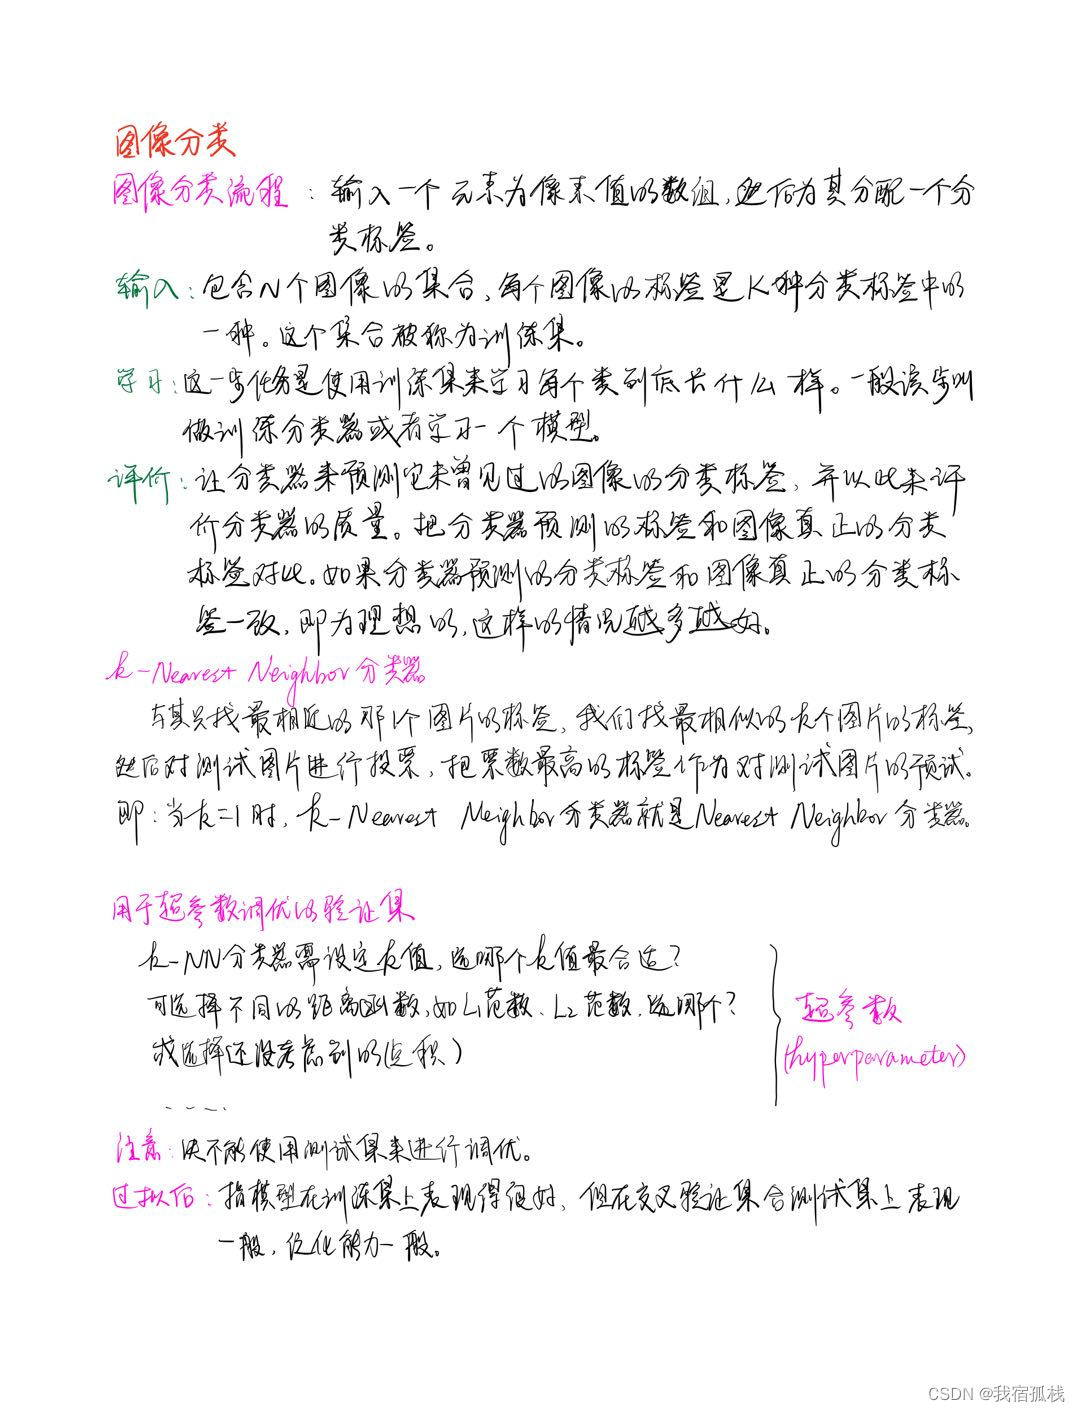 图像分类
图像分类流程：输入一个元素为像素值的数组，然后为其分配一个分
类标签。
输入：包含N个图像的集合，每个图像的标签是K种分类标签中的
一种。这个集合被称为训练集。
学习：这一步任务是使用训练集来学习每个类到底长什么样。一般该步叫
做训练分类器或者学习一个模型。
评价：让分类器来预测它未曾见过的图像的分类标签，并以此来评
价分类器的质量。把分类器预测的标签和图像真正的分类
标签对比。如果分类器预测的分类标签和图像真正的分类标
签一致，即为理想的，这样的情况越多越好。
k-Nearest Neighbor分类器
与其只找最相近的那1个图片的标签，我们找最相似的k个图片的标签，
然后对测试图片进行投票，把票数最高的标签作为对测试图片的预试。
即：当k=1时，k-Nearest Neighbor分类器就是Nearest Neighbor分类器。
用于超参数调优的验证集
k-NN分类器需设定k值，选哪个k值最合适？
可选择不同的距离函数，如L1范数、L2范数，选哪个？
或选择还没考虑到的(点积)
.....
超参数
(hyperparameter)
注意：决不能使用测试集来进行调优。
过拟合：指模型在训练集上表现得很好，但在交叉验证集合测试集上表现
一般，泛化能力一般。
CSDN @我宿孤栈